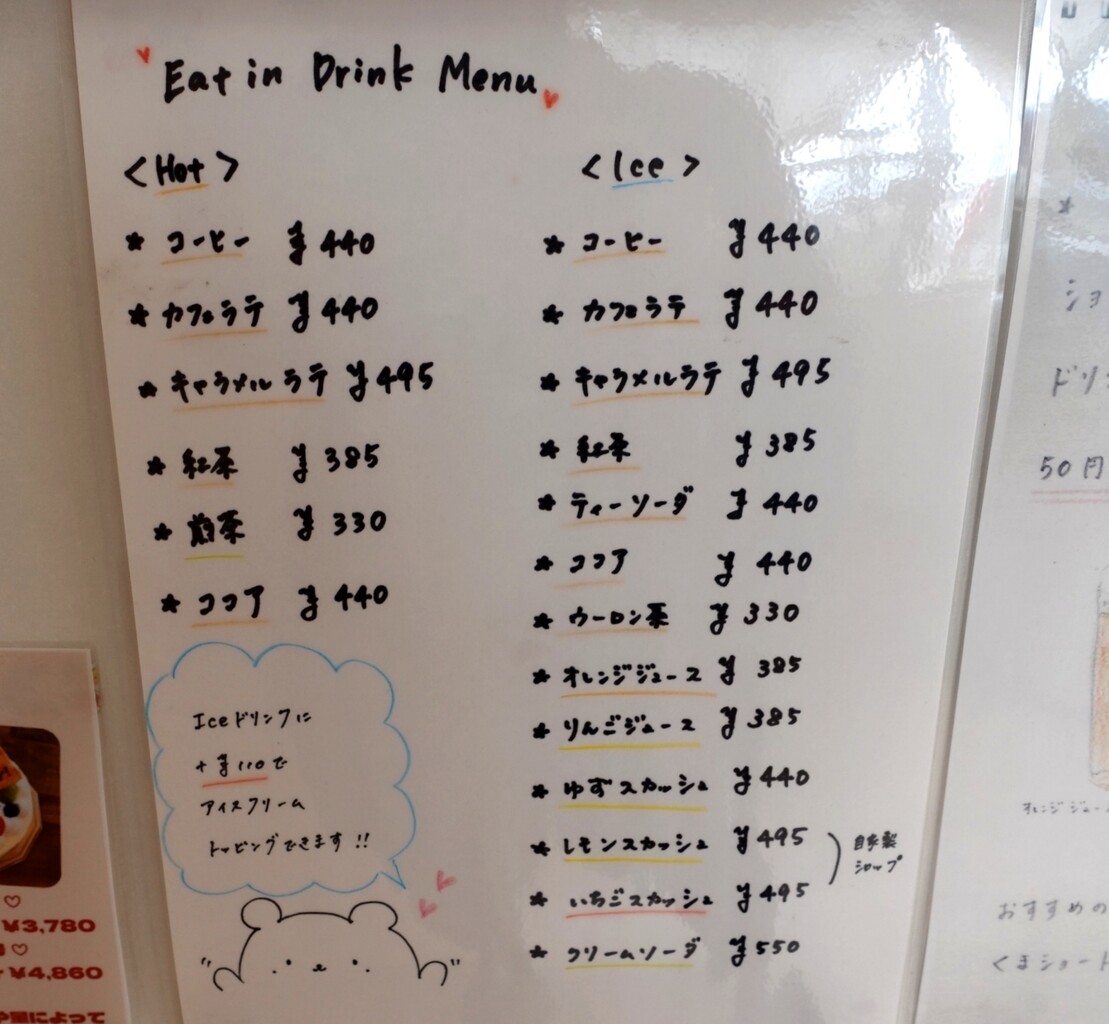 Eat in Drink Menu
<Hot>
* コーヒー ¥440
* カフェラテ ¥440
* キャラメルラテ ¥495
* 紅茶 ¥385
* 煎茶 ¥330
* ココア ¥440
<Ice>
* コーヒー ¥440
* カフェラテ ¥440
* キャラメルラテ ¥495
* 紅茶 ¥385
* ティーソーダ ¥440
* ココア ¥440
* ウーロン茶 ¥330
* オレンジジュース ¥385
* りんごジュース ¥385
* ゆずスカッシュ ¥440
* レモンスカッシュ ¥495
* いちごスカッシュ ¥495
自家製
シロップ
* クリームソーダ ¥550
Iceドリンクに
+¥110で
アイスクリーム
トッピングできます!!
¥3,780
¥4,860
によって
ドリン
50円
オレンジジュー
おすすめの
くまショート